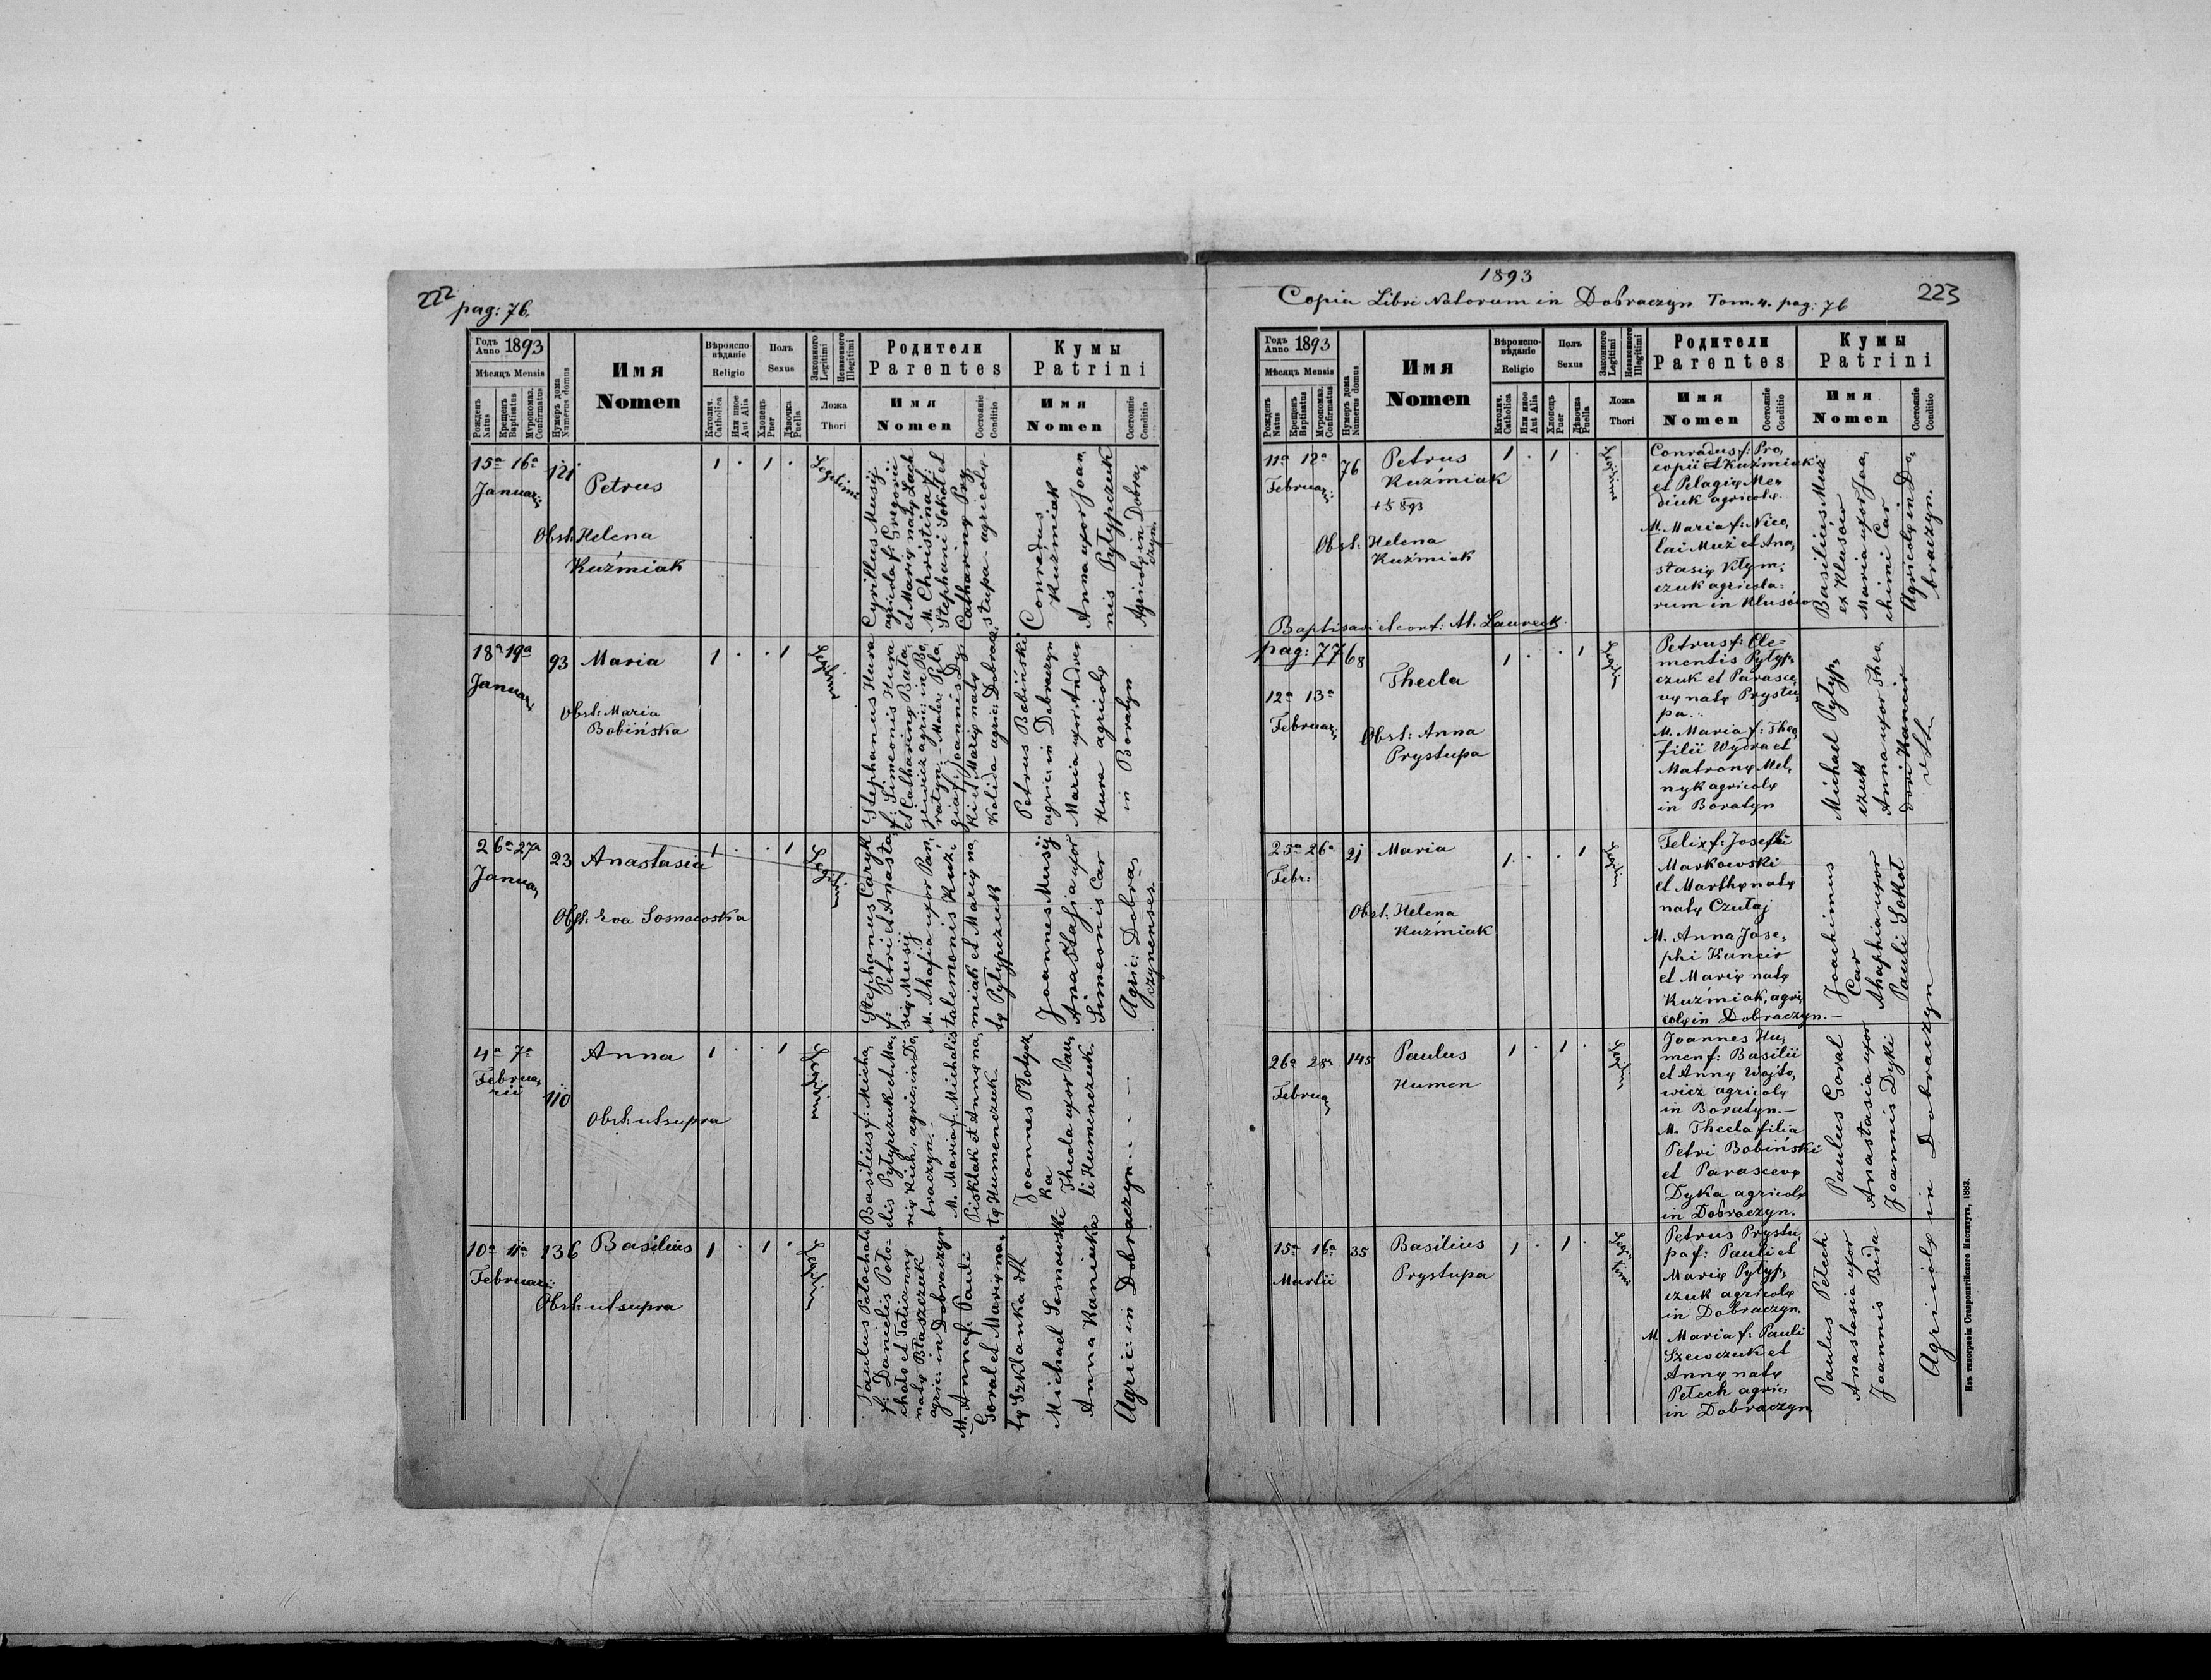 222
pag: 76.
Годъ
Anno 1893
Мѣсяцъ Mensis
Рожденъ
Natus
Крещенъ
Baptisatus
Муропомаз.
Confirmatus
Нумеръ дома
Numerus domus
Имя
Nomen
Вѣроиспо
вѣданіе
Religio
Католич.
Catholica
Или иное
Aut Alia
Полъ
Sexus
Хлопецъ
Puer
Дѣвочка
Puella
Законного
Legitimi
Незаконного
Illegitimi
Ложа
Thori
Родители
Parentes
Имя
Nomen
Состояніе
Conditio
Кумы
Patrini
Имя
Nomen
Состояніе
Conditio
15a 16a
Januarii
121
Petrus
Obst: Helena
Kuźmiak
1 . 1 .
Legitimi
Cyrillus Musij
agricola f: Gregorii
et Marię natę Lach
M. Christina f:
Stephani Sokoł et
Catharinę Pry,
stupa agricolę.
Conradus
Kuźmiak
Anna uxor Joan,
nis Pyłypczuk
Agricolę in Dobra,
czyn.
18a 19a
Januar,
93
Maria
Obst: Maria
Bobińska
1 . . 1
Legitimi
Stephanus Hura
f: Simeonis Hura
et Catharinę Bata,
jewicz agric: in Bo,
ratyn. - Mater: Pela,
gia f: Joannis Dy,
ki et Marię natę
Kalida agric: Dobracz.
Petrus Bobiński
agric: in Dobraczyn
Maria uxor Andreę
Hura agricolę
in Boratyn
26a 27a
Januar,
23
Anastasia
Obst: Eva Sosnowska
1 . . 1
Legitimi
Stephanus Caryk
f: Petri et Anasta,
się Musij
M. Ahafia uxor Pan,
talemonis Kuź,
miak et Marię na,
tę Pyłypczuk
Joannes Musij
Anastasia uxor
Simeonis Car
Agric: Dobra,
czynenses.
4a 7a
Februa,
rii
110
Anna
Obst: ut supra
1 . . 1
Legitimi
Basilius f: Micha,
elis Pyłypczuk et Ma,
rię Kich, agric: in Do,
braczyn. -
M. Maria f: Michalis
Pisklak et Annę na,
tę Humenczuk.
Joannes Płotycz
ka
Thecla uxor Pau,
li Humenczuk.
10a 11a
Februarii:
136
Basilius
Obst: ut supra
1 . 1 .
Legitimi
Paulus Potochato
f: Danielis Poto-
chato et Tatiannę
natę Błaszczuk
agric: in Dobraczyn
M. Anna f: Pauli
Goral et Marię na,
tę Szklanka dtt
Michael Sosnowski
Anna Kanicka
Agric: in Dobraczyn
1893
Copia Libri Natorum in Dobraczyn Tom. 4. pag: 76
223
Годъ
Anno 1893
Мѣсяцъ Mensis
Рожденъ
Natus
Крещенъ
Baptisatus
Муропомаз.
Confirmatus
Нумеръ дома
Numerus domus
Имя
Nomen
Вѣроиспо-
вѣданіе
Religio
Католич.
Catholica
Или иное
Aut Alia
Полъ
Sexus
Хлопецъ
Puer
Дѣвочка
Puella
Законного
Legitimi
Незаконного
Illegitimi
Ложа
Thori
Родители
Parentes
Имя
Nomen
Состояніе
Conditio
Кумы
Patrini
Имя
Nomen
Состояніе
Conditio
11a 12a
Februar:
76
Petrus
Kuźmiak
Obst: Helena
Kuźmiak
1 . 1 .
Legitimi
Conradus f: Pro,
copii et Kuźmiak
et Pelagię Me,
diuk agricolę.
M. Maria f: Nico,
lai Muż et Ana,
stasię Kłym,
czuk agricola,
rum in Klusów
Basilius Muż
ex Klusów
Maria uxor Joa,
chimi Car
Agricolę in Do,
braczyn.
Baptisavi et conf: Al. Laureck.
pag: 77
12a 13a
Februar,
68
Thecla
Obst: Anna
Prystupa
1 . . 1
Legitimi
Petrus f: Cle=
mentis Pyłyp,
czuk et Parasce,
vę natę Prystu,
pa.
M. Maria f: Theo,
filii Wydra et
Matronę Mel,
nyk agricolę
in Boratyn
Michael Pyłyp,
czuk
Anna uxor Theo,
dori Kancir
25a 26a
Febr:
21
Maria
Obst: Helena
Kuźmiak
1 . . 1
Legitimi
Felix f: Josephi
Markowski
et Marthę natę
natę Czułaj
M. Anna Jose,
phi Kancir
et Marię natę
Kuźmiak, agri,
colę in Dobraczyn. -
Joachimus
Car
Ahaphia uxor
Pauli Sokoł
26a 28a
Februa,
145
Paulus
Humen
1 . 1 .
Legitimi
Joannes Hu,
men f: Basilii
et Annę Wojto,
wicz agricolę
in Boratyn. -
M. Thecla filia
Petri Bobiński
et Parascevę
Dyka agricolę
in Dobraczyn.
Paulus Goral
Anastasia uxor
Joannis Dyki
15a 16a
Martii
35
Basilius
Prystupa
1 . 1 .
Legitimi
Petrus Prystu,
pa f: Pauli et
Marię Pyłyp,
czuk agricolę
in Dobraczyn.
M. Maria f: Pauli
Szewczuk et
Annę natę
Petech agric,
in Dobraczyn
Paulus Petech
Anastasia uxor
Joannis Bida
Agricolę in Dobraczyn
Изъ типографіи Ставропигійского Института, 1882.